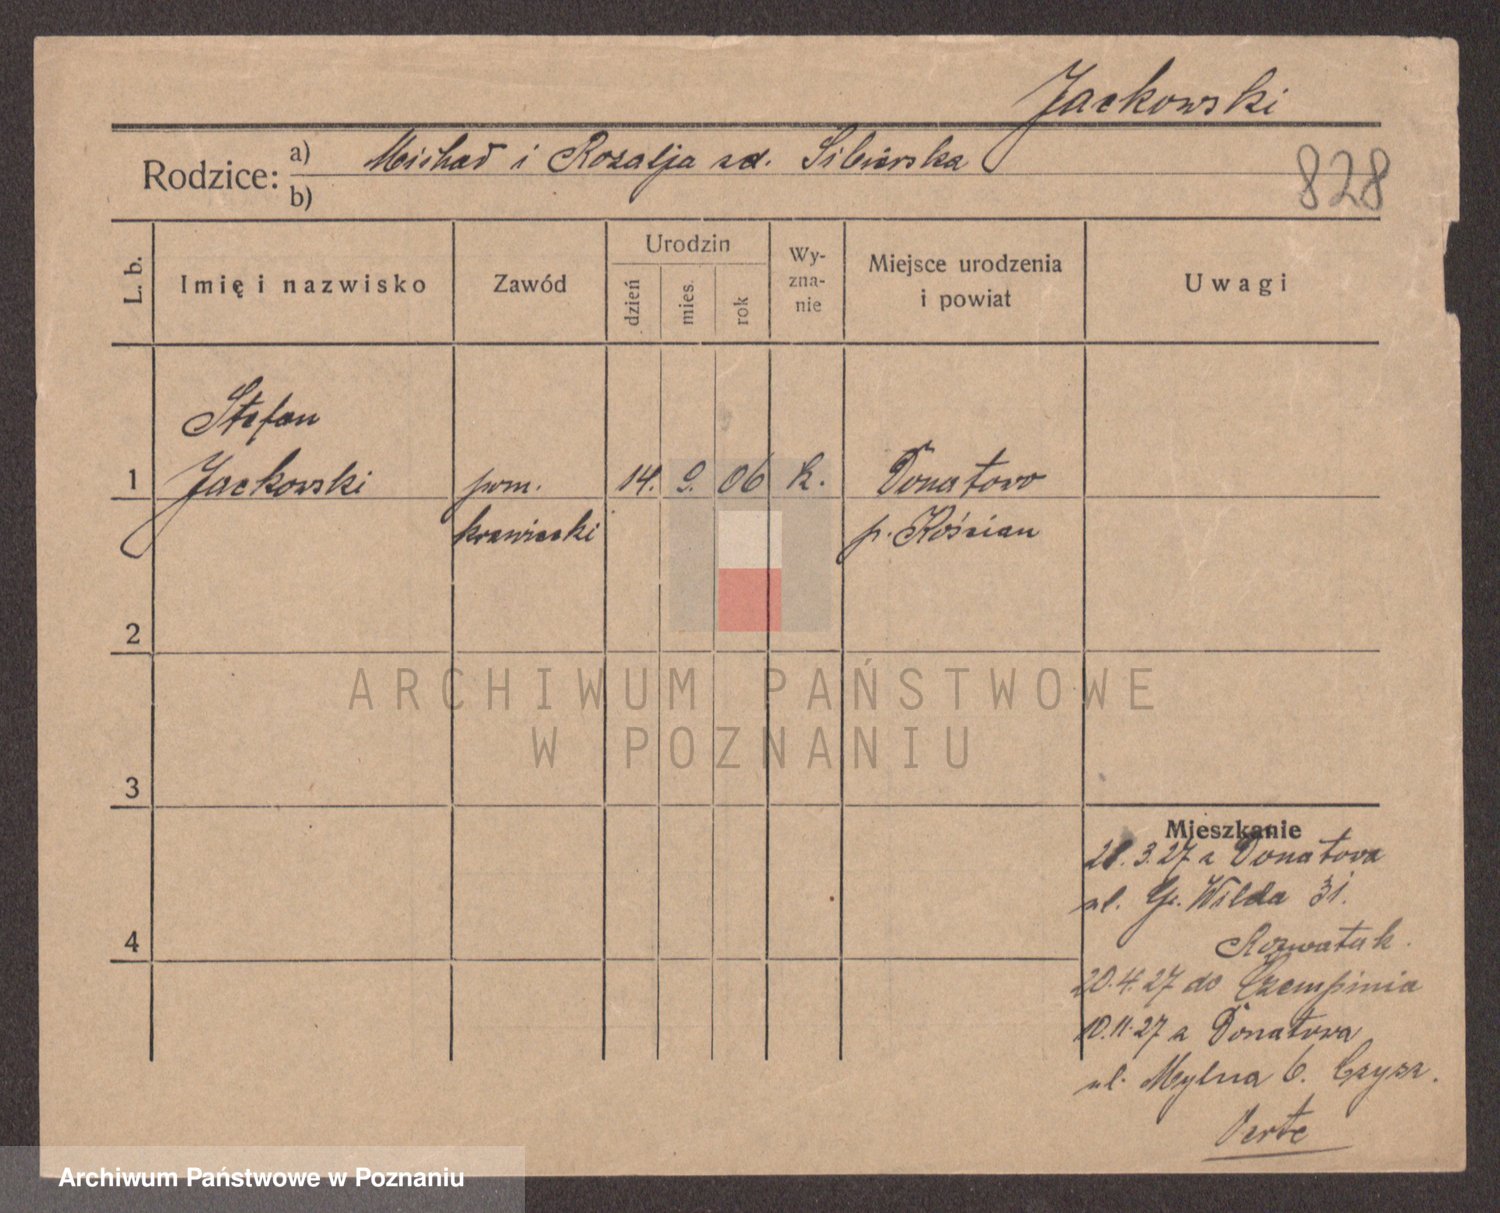 Jackowski
Rodzice: a) Michał i Rozalja zd. Sibierska
b)
828
L. b.
Imię i nazwisko
Zawód
Urodzin
dzień
mies.
rok
Wy-
zna-
nie
Miejsce urodzenia
i powiat
Uwagi
Stefan
1 Jackowski pom. 14. 9. 06 k. Donatowo
krawiecki p. Kościan
2
3
4
Mieszkanie
28. 3. 27 z Donatowa
ul. G. Wilda 31.
20. 4. 27 do Czempinia
10. 11. 27 z Donatowa
ul. Mylna 6. Czysz.
Verte
ARCHIWUM PAŃSTWOWE
W POZNANIU
Archiwum Państwowe w Poznaniu